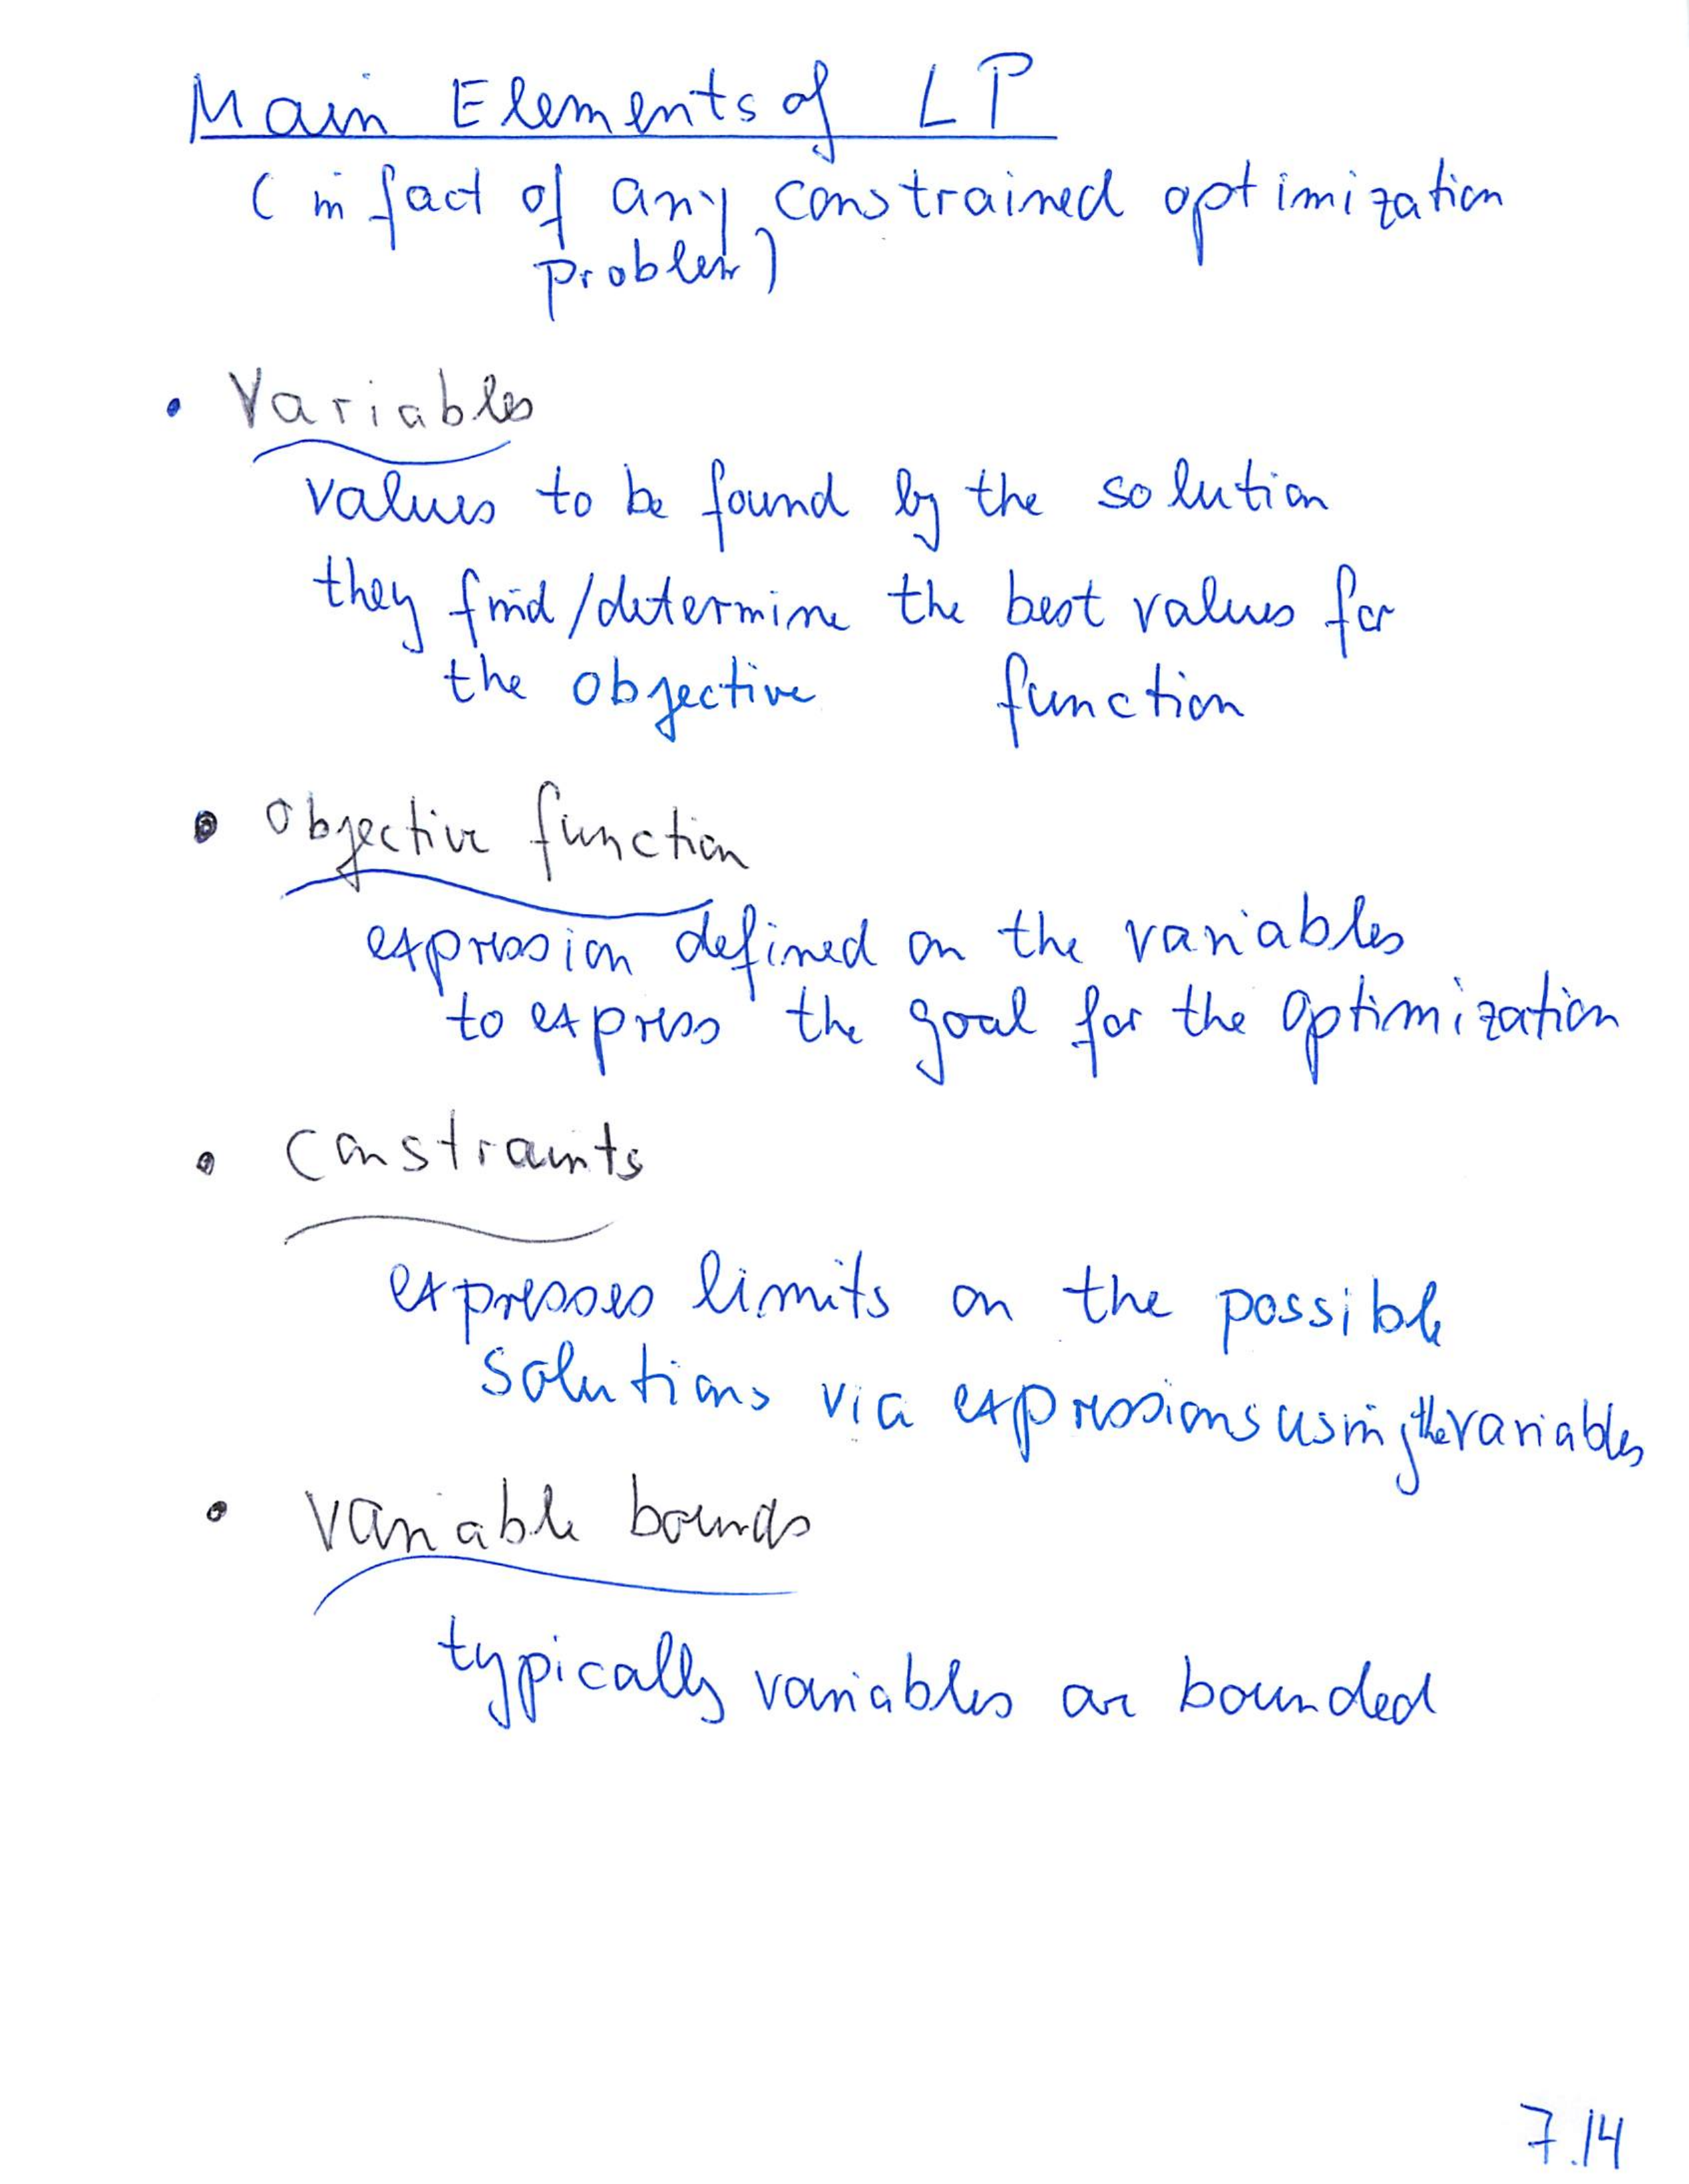 Main Elements of LP
(in fact of any constrained optimization
problem)
• Variables
values to be found by the solution
they find/determine the best values for
the objective function
• Objective function
expression defined on the variables
to express the goal for the optimization
• Constraints
expresses limits on the possible
solutions via expressions using the variables
• Variable bounds
typically variables are bounded
7.14